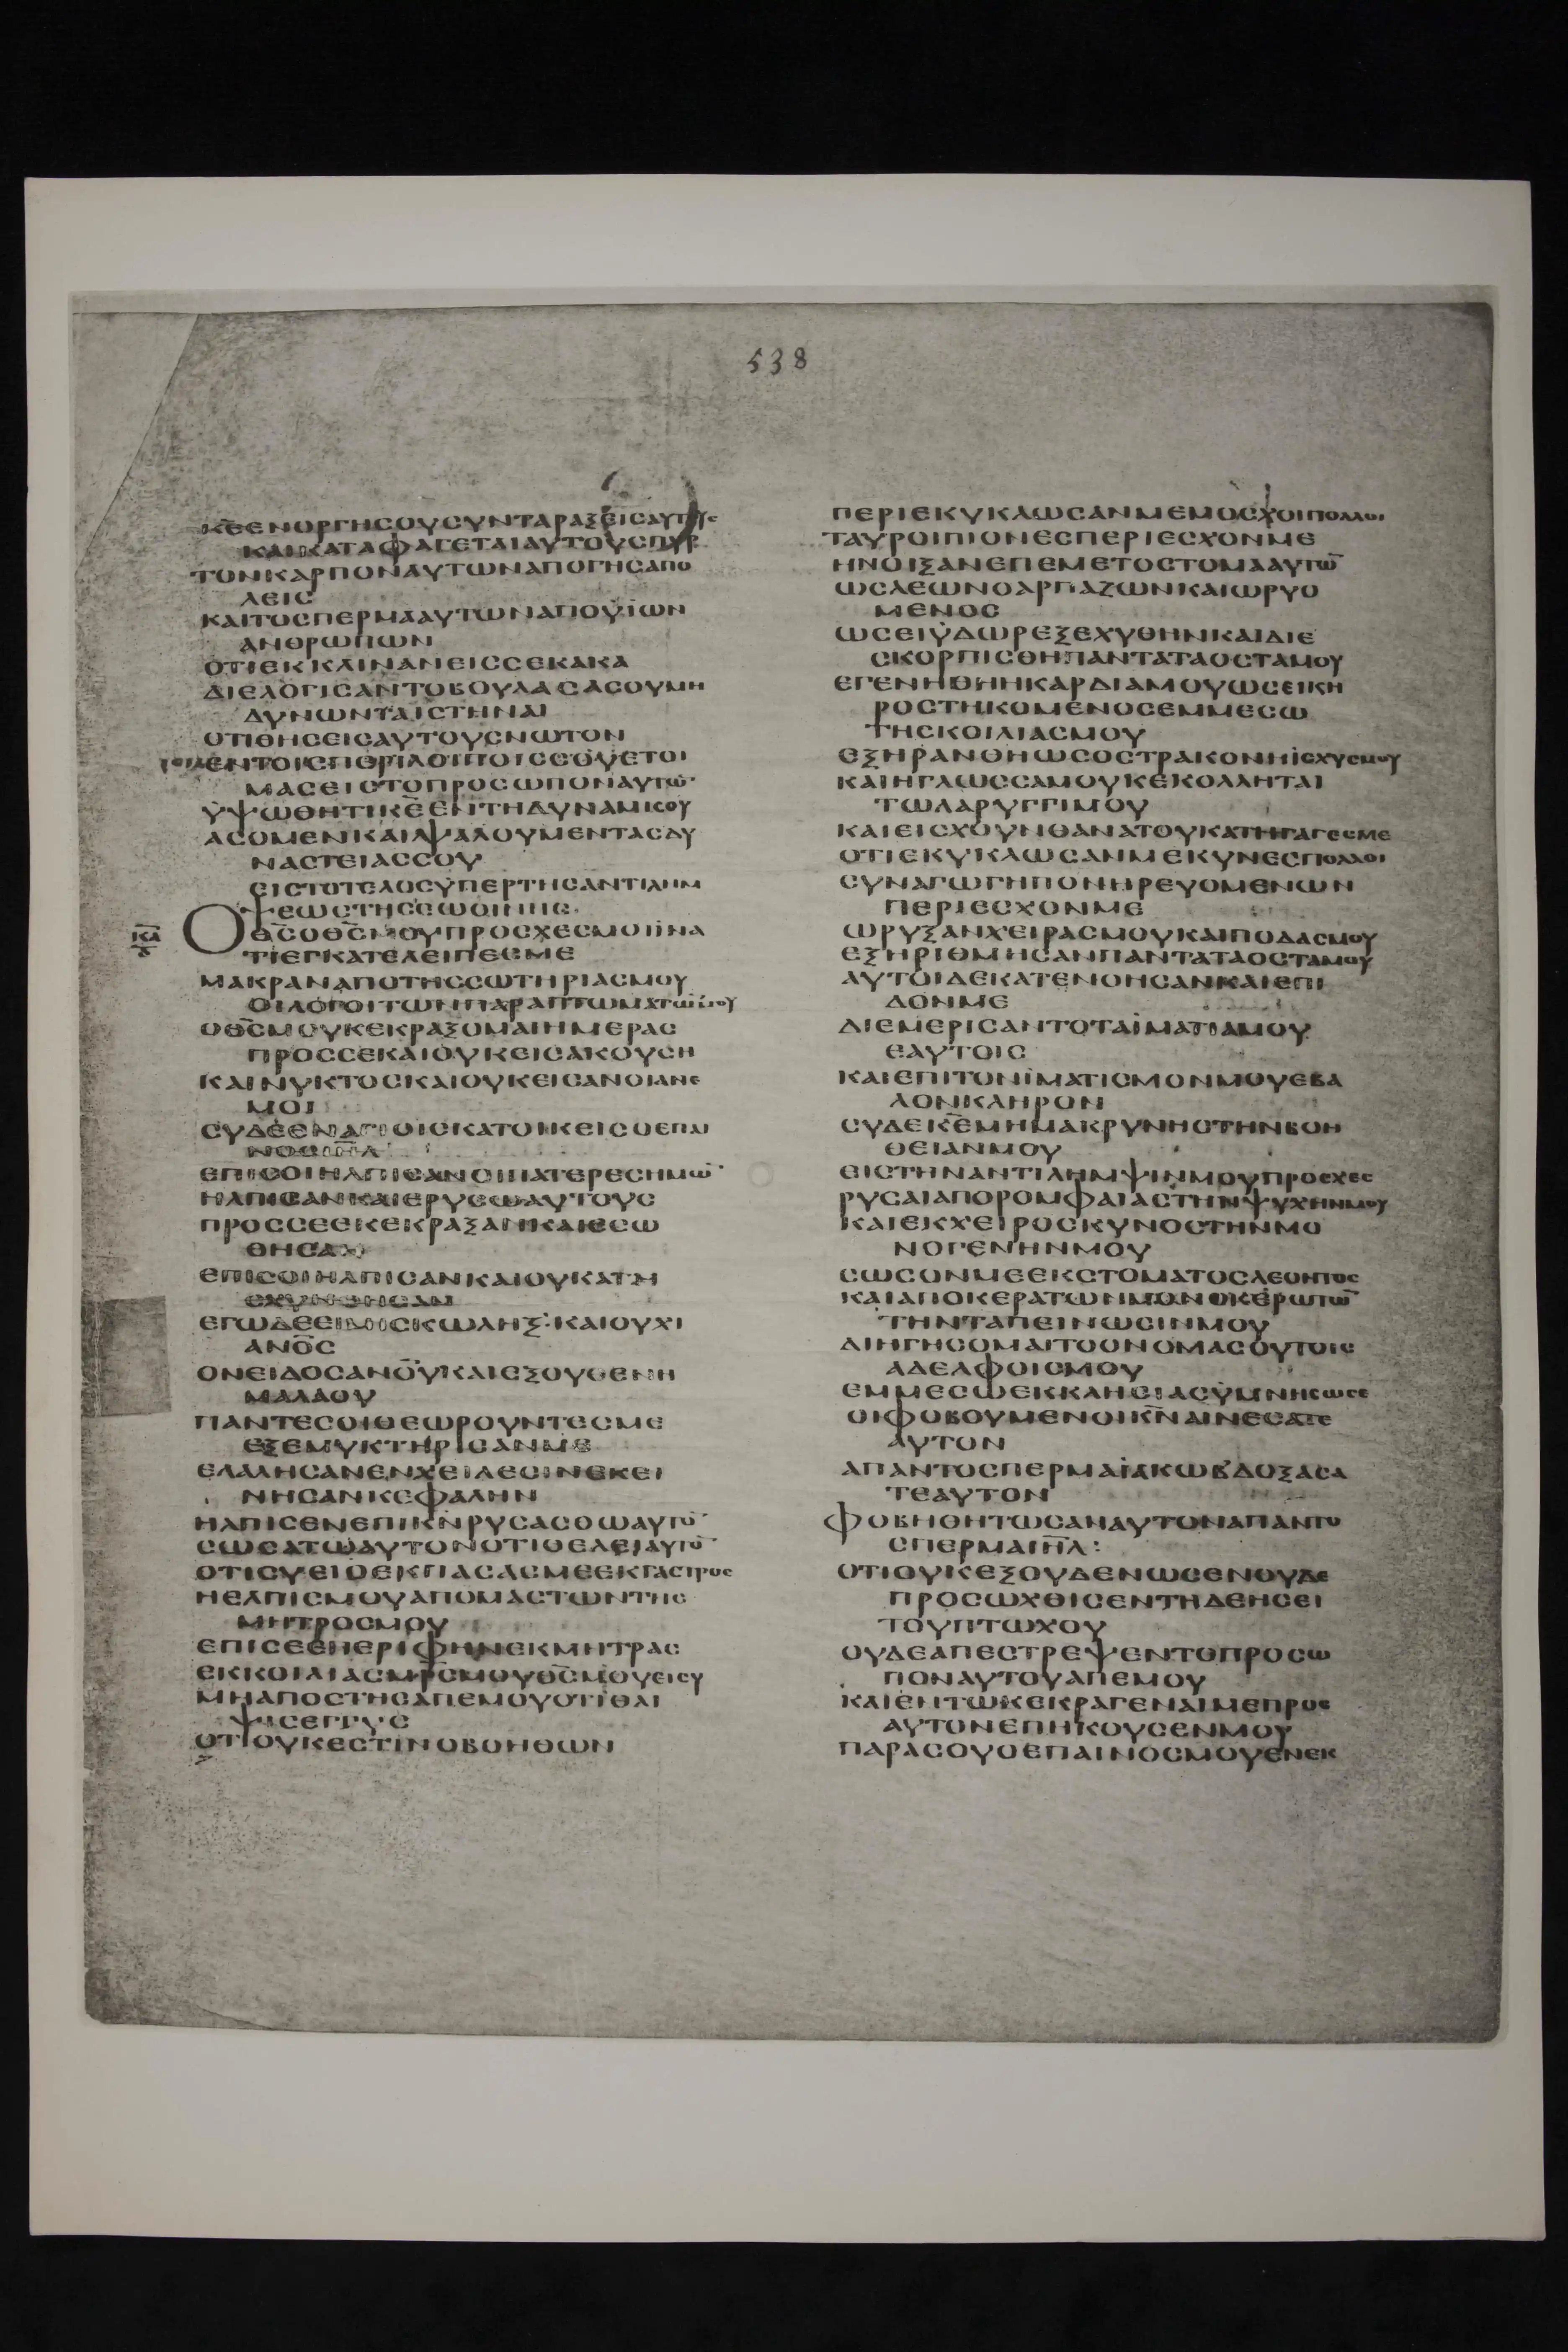 538
Κ̅Ε̅ΕΝΟΡΓΗΣΟΥΣΥΝΤΑΡΑΞΕΙΣΑΥΤΟΥΣ
ΚΑΙΚΑΤΑΦΑΓΕΤΑΙΑΥΤΟΥΣΠΥΡ
ΤΟΝΚΑΡΠΟΝΑΥΤΩΝΑΠΟΓΗΣΑΠΟ
ΛΕΙΣ
ΚΑΙΤΟΣΠΕΡΜΑΑΥΤΩΝΑΠΟΫΙΩΝ
ΑΝΘΡΩΠΩΝ
ΟΤΙΕΚΚΛΙΝΑΝΕΙΣΣΕΚΑΚΑ
ΔΙΕΛΟΓΙΣΑΝΤΟΒΟΥΛΑΣΑΣΟΥΜΗ
ΔΥΝΩΝΤΑΙΣΤΗΝΑΙ
ΟΤΙΘΗΣΕΙΣΑΥΤΟΥΣΝΩΤΟΝ
ΕΝΤΟΙΣΠΕΡΙΛΟΙΠΟΙΣΣΟΥΕΤΟΙ
ΜΑΣΕΙΣΤΟΠΡΟΣΩΠΟΝΑΥΤΩ̅
ΫΨΩΘΗΤΙΚ̅Ε̅ΕΝΤΗΔΥΝΑΜΙΣΟΥ
ΑΣΟΜΕΝΚΑΙΨΑΛΟΥΜΕΝΤΑΣΔΥ
ΝΑΣΤΕΙΑΣΣΟΥ
ΕΙΣΤΟΤΕΛΟΣΫΠΕΡΤΗΣΑΝΤΙΛΗΜ
ΨΕΩΣΤΗΣΕΩΘΙΝΗΣ
Κ̅Α̅
Ο Θ̅Σ̅ΟΘ̅Σ̅ΜΟΥΠΡΟΣΧΕΣΜΟΙΪΝΑ
ΤΙΕΓΚΑΤΕΛΕΙΠΕΣΜΕ
ΜΑΚΡΑΝΑΠΟΤΗΣΣΩΤΗΡΙΑΣΜΟΥ
ΟΙΛΟΓΟΙΤΩΝΠΑΡΑΠΤΩΜΑΤΩ̅ΜΟΥ
ΟΘ̅Σ̅ΜΟΥΚΕΚΡΑΞΟΜΑΙΗΜΕΡΑΣ
ΠΡΟΣΣΕΚΑΙΟΥΚΕΙΣΑΚΟΥΣΗ
ΚΑΙΝΥΚΤΟΣΚΑΙΟΥΚΕΙΣΑΝΟΙΑΝΕ
ΜΟΙ
ΣΥΔΕΕΝΑΓΙΟΙΣΚΑΤΟΙΚΕΙΣΟΕΠΑΙ
ΝΟΣΙ̅Η̅Λ̅
ΕΠΙΣΟΙΗΛΠΙΣΑΝΟΙΠΑΤΕΡΕΣΗΜΩ̅
ΗΛΠΙΣΑΝΚΑΙΕΡΥΣΩΑΥΤΟΥΣ
ΠΡΟΣΣΕΕΚΕΚΡΑΞΑΝΚΑΙΕΣΩ
ΘΗΣΑΝ
ΕΠΙΣΟΙΗΛΠΙΣΑΝΚΑΙΟΥΚΑΤΗ
ΣΧΥΝΘΗΣΑΝ
ΕΓΩΔΕΕΙΜΙΣΚΩΛΗΞ·ΚΑΙΟΥΧΙ
ΑΝ̅Ο̅Σ̅
ΟΝΕΙΔΟΣΑΝ̅Ο̅Υ̅ΚΑΙΕΞΟΥΘΕΝΗ
ΜΑΛΑΟΥ
ΠΑΝΤΕΣΟΙΘΕΩΡΟΥΝΤΕΣΜΕ
ΕΞΕΜΥΚΤΗΡΙΣΑΝΜΕ
ΕΛΑΛΗΣΑΝΕΝΧΕΙΛΕΣΙΝΕΚΕΙ
ΝΗΣΑΝΚΕΦΑΛΗΝ
ΗΛΠΙΣΕΝΕΠΙΚ̅Ν̅ΡΥΣΑΣΘΩΑΥΤΟ̅
ΣΩΣΑΤΩΑΥΤΟΝΟΤΙΘΕΛΕΙΑΥΤΟ̅
ΟΤΙΣΥΕΙΟΕΚΠΑΣΑΣΜΕΕΚΓΑΣΤΡΟΣ
ΗΕΛΠΙΣΜΟΥΑΠΟΜΑΣΤΩΝΤΗΣ
ΜΗΤΡΟΣΜΟΥ
ΕΠΙΣΕΕΠΕΡΙΦΗΝΕΚΜΗΤΡΑΣ
ΕΚΚΟΙΛΙΑΣΜ̅Ρ̅Σ̅ΜΟΥΘ̅Σ̅ΜΟΥΕΙΣΥ
ΜΗΑΠΟΣΤΗΣΑΠΕΜΟΥΟΤΙΘΛΙ
ΨΙΣΕΓΓΥΣ
ΟΤΙΟΥΚΕΣΤΙΝΟΒΟΗΘΩΝ
ΠΕΡΙΕΚΥΚΛΩΣΑΝΜΕΜΟΣΧΟΙΠΟΛΛΟΙ
ΤΑΥΡΟΙΠΙΟΝΕΣΠΕΡΙΕΣΧΟΝΜΕ
ΗΝΟΙΞΑΝΕΠΕΜΕΤΟΣΤΟΜΑΑΥΤΩ̅
ΩΣΛΕΩΝΟΑΡΠΑΖΩΝΚΑΙΩΡΥΟ
ΜΕΝΟΣ
ΩΣΕΙΫΔΩΡΕΞΕΧΥΘΗΝΚΑΙΔΙΕ
ΣΚΟΡΠΙΣΘΗΠΑΝΤΑΤΑΟΣΤΑΜΟΥ
ΕΓΕΝΗΘΗΗΚΑΡΔΙΑΜΟΥΩΣΕΙΚΗ
ΡΟΣΤΗΚΟΜΕΝΟΣΕΜΜΕΣΩ
ΤΗΣΚΟΙΛΙΑΣΜΟΥ
ΕΞΗΡΑΝΘΗΩΣΟΣΤΡΑΚΟΝΗΪΣΧΥΣΜΟΥ
ΚΑΙΗΓΛΩΣΣΑΜΟΥΚΕΚΟΛΛΗΤΑΙ
ΤΩΛΑΡΥΓΓΙΜΟΥ
ΚΑΙΕΙΣΧΟΥΝΘΑΝΑΤΟΥΚΑΤΗΓΑΓΕΣΜΕ
ΟΤΙΕΚΥΚΛΩΣΑΝΜΕΚΥΝΕΣΠΟΛΛΟΙ
ΣΥΝΑΓΩΓΗΠΟΝΗΡΕΥΟΜΕΝΩΝ
ΠΕΡΙΕΣΧΟΝΜΕ
ΩΡΥΞΑΝΧΕΙΡΑΣΜΟΥΚΑΙΠΟΔΑΣΜΟΥ
ΕΞΗΡΙΘΜΗΣΑΝΠΑΝΤΑΤΑΟΣΤΑΜΟΥ
ΑΥΤΟΙΔΕΚΑΤΕΝΟΗΣΑΝΚΑΙΕΠΙ
ΔΟΝΜΕ
ΔΙΕΜΕΡΙΣΑΝΤΟΤΑΪΜΑΤΙΑΜΟΥ
ΕΑΥΤΟΙΣ
ΚΑΙΕΠΙΤΟΝΪΜΑΤΙΣΜΟΝΜΟΥΕΒΑ
ΛΟΝΚΛΗΡΟΝ
ΣΥΔΕΚ̅Ε̅ΜΗΜΑΚΡΥΝΗΣΤΗΝΒΟΗ
ΘΕΙΑΝΜΟΥ
ΕΙΣΤΗΝΑΝΤΙΛΗΜΨΙΝΜΟΥΠΡΟΣΧΕΣ
ΡΥΣΑΙΑΠΟΡΟΜΦΑΙΑΣΤΗΝΨΥΧΗΝΜΟΥ
ΚΑΙΕΚΧΕΙΡΟΣΚΥΝΟΣΤΗΝΜΟ
ΝΟΓΕΝΗΝΜΟΥ
ΣΩΣΟΝΜΕΕΚΣΤΟΜΑΤΟΣΛΕΟΝΤΟΣ
ΚΑΙΑΠΟΚΕΡΑΤΩΝΜΟΝΟΚΕΡΩΤΩ̅
ΤΗΝΤΑΠΕΙΝΩΣΙΝΜΟΥ
ΔΙΗΓΗΣΟΜΑΙΤΟΟΝΟΜΑΣΟΥΤΟΙΣ
ΑΔΕΛΦΟΙΣΜΟΥ
ΕΜΜΕΣΩΕΚΚΛΗΣΙΑΣΫΜΝΗΣΩΣΕ
ΟΙΦΟΒΟΥΜΕΝΟΙΚ̅Ν̅ΑΙΝΕΣΑΤΕ
ΑΥΤΟΝ
ΑΠΑΝΤΟΣΠΕΡΜΑΪΑΚΩΒ'ΔΟΞΑΣΑ
ΤΕΑΥΤΟΝ
ΦΟΒΗΘΗΤΩΣΑΝΑΥΤΟΝΑΠΑΝΤΟ
ΣΠΕΡΜΑΙ̅Η̅Λ̅:
ΟΤΙΟΥΚΕΞΟΥΔΕΝΩΣΕΝΟΥΔΕ
ΠΡΟΣΩΧΘΙΣΕΝΤΗΔΕΗΣΕΙ
ΤΟΥΠΤΩΧΟΥ
ΟΥΔΕΑΠΕΣΤΡΕΨΕΝΤΟΠΡΟΣΩ
ΠΟΝΑΥΤΟΥΑΠΕΜΟΥ
ΚΑΙΕΝΤΩΚΕΚΡΑΓΕΝΑΙΜΕΠΡΟΣ
ΑΥΤΟΝΕΠΗΚΟΥΣΕΝΜΟΥ
ΠΑΡΑΣΟΥΟΕΠΑΙΝΟΣΜΟΥΕΝΕΚ